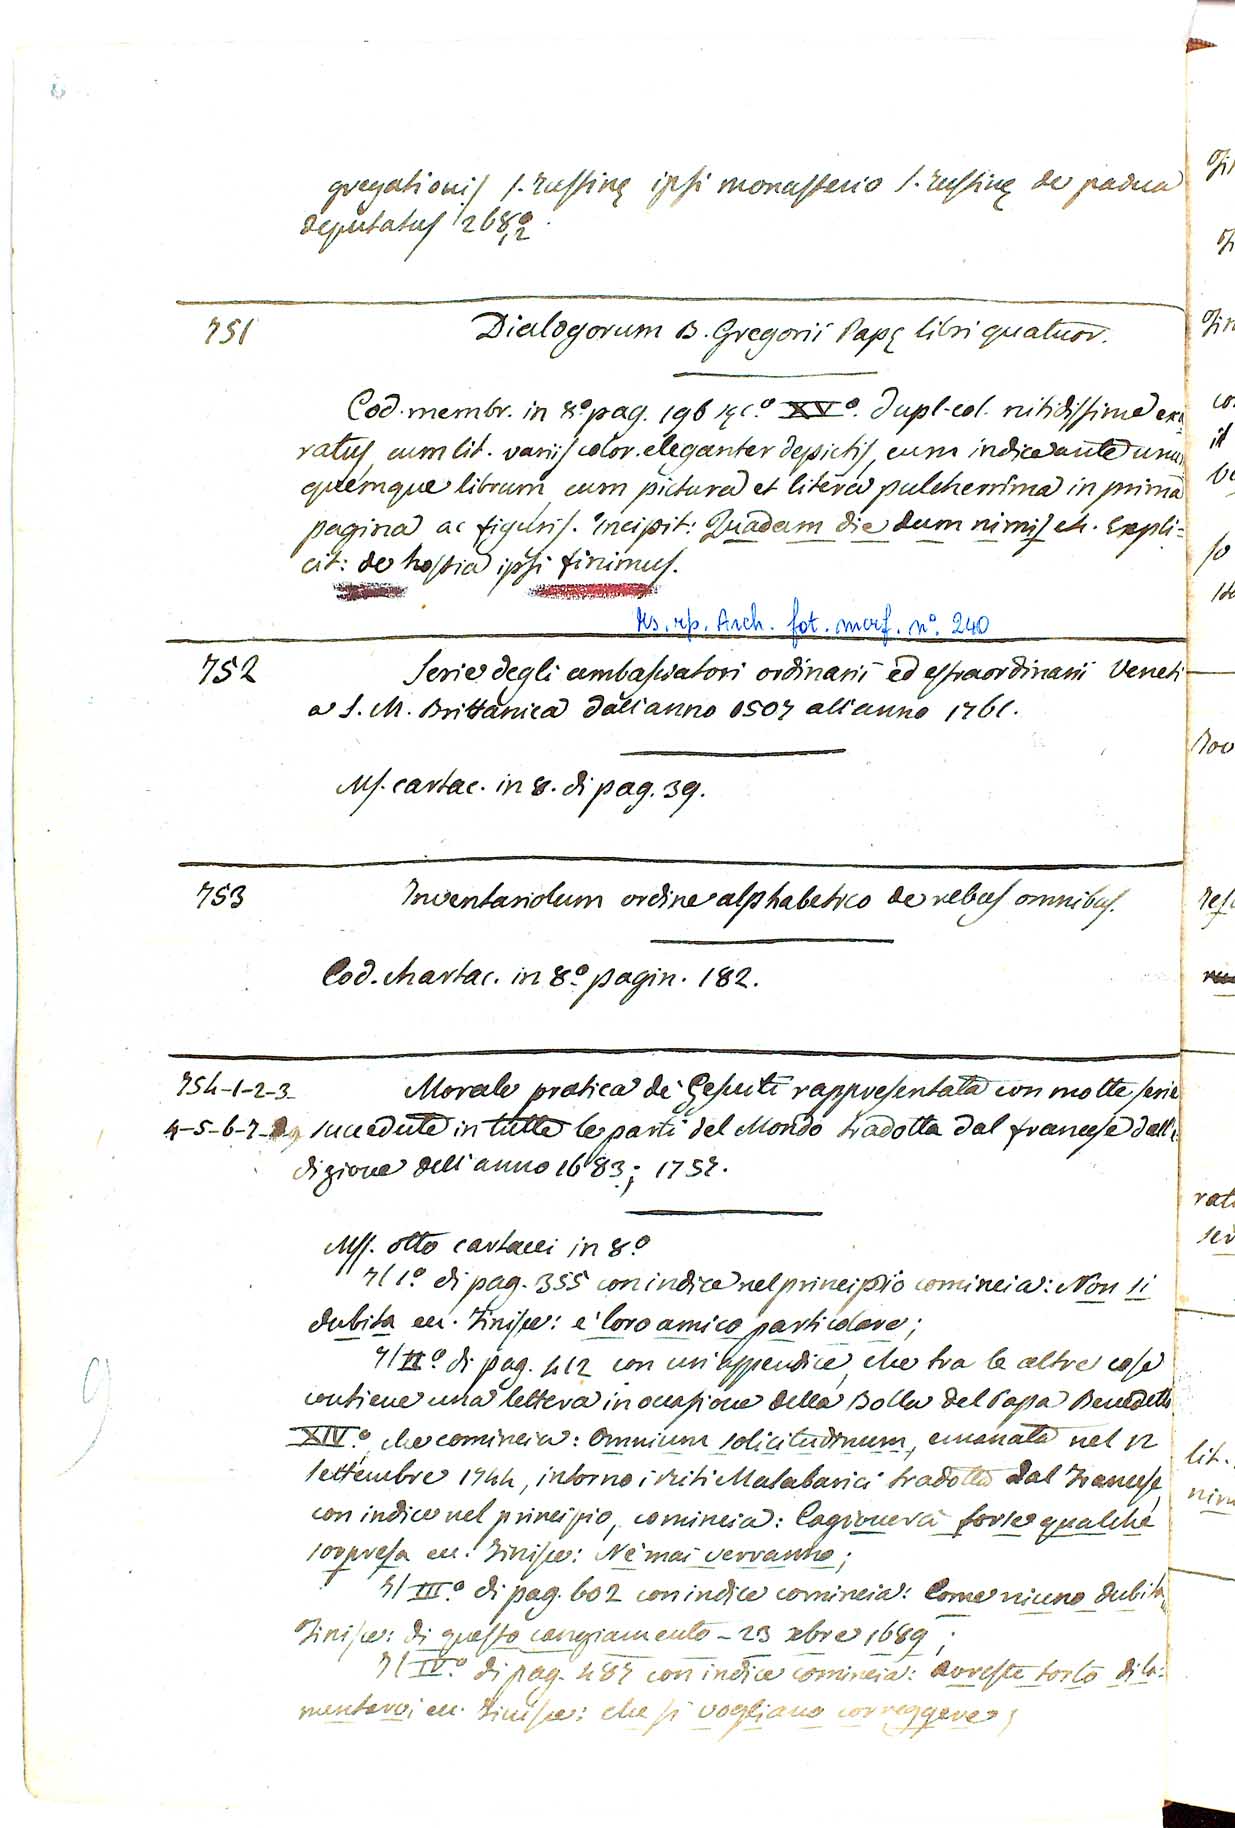 gregationis S. Iustinę ipsi monasterio S. Iustinę de padua
deputatus 268,2º.
751 Dialogorum B. Gregorii Papę libri quatuor.
Cod. membr. in 8º pag. 196 XVº. dupl. col. nitidissime exa
ratus, cum lit. variis color. eleganter depictis, cum indice ante unum
quemque librum, cum pictura et litera pulcherrima in prima
pagina ac figuris. Incipit: Quadam die dum nimis etc. Expli=
cit: de hostia ipsi finimus.
Arch. fot. n.º 240
752 Serie degli ambasciatori ordinarii ed estraordinarii Veneti
a S. M. Brittanica dall'anno 1507 all'anno 1761.
Ms. cartac. in 8. di pag. 39.
753 Inventariolum ordine alphabetico de rebus omnibus.
Cod. chartac. in 8º pagin. 182.
754-1-2-3 Morale pratica de' Gesuiti rappresentata con molte serie
4-5-6-7- succedute in tutte le parti del Mondo tradotta dal francese dall'e=
dizione dell'anno 1683; 1757.
Mss. otto cartacei in 8º
Il 1º. di pag. 355 con indice nel principio comincia: Non si
dubita ec. Finisce: è loro amico particolare;
Il IIº. di pag. 412 con un'appendice, che tra le altre cose
contiene una lettera in occasione della Bolla del Papa Benedetto
XIV.º, che comincia: Omnium solicitudinum, emanata nel 12
settembre 1744, intorno i riti Malabarici tradotta dal Francese,
con indice nel principio, comincia: Cagionerà forse qualche
sorpresa ec. Finisce: Nè mai verranno;
Il III.º di pag. 602 con indice comincia: Come niuno dubita,
Finisce: di questo cangiamento - 23 xbre 1689;
Il IV.º di pag. 487 con indice comincia: Avreste torto di la=
mentarvi ec. Finisce: che si vogliano correggere;
9